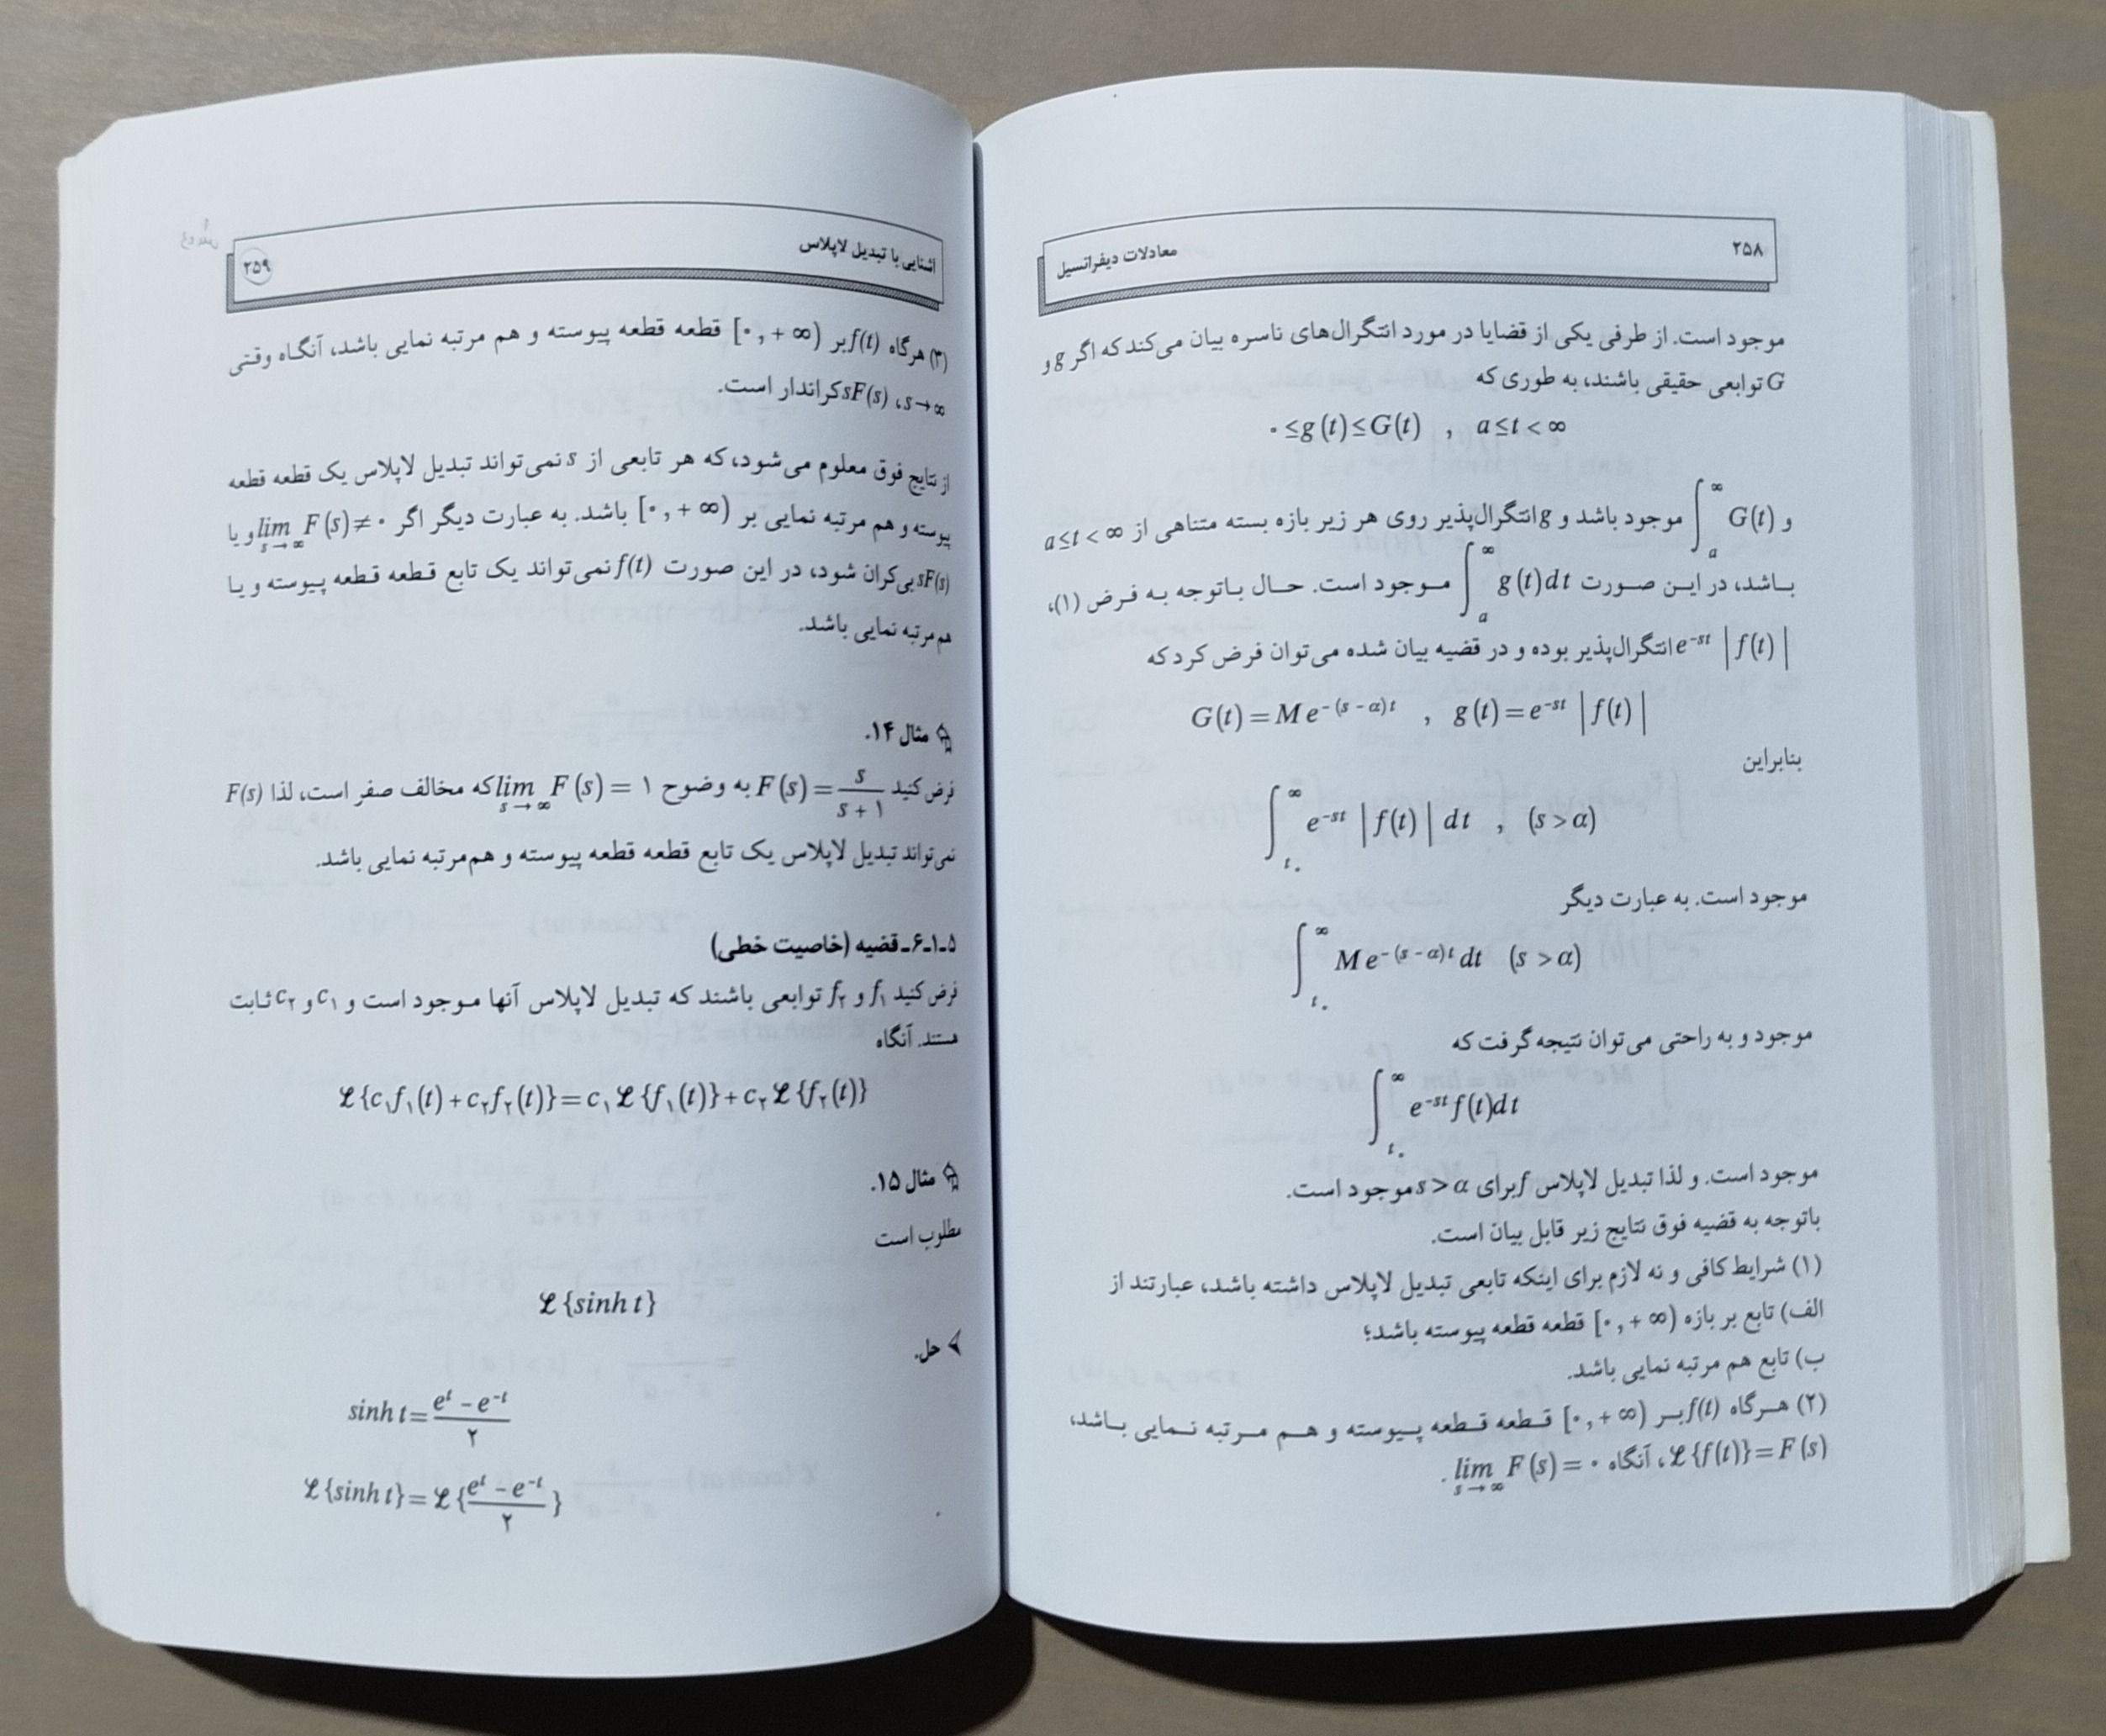 ۲۵۸
معادلات دیفرانسیل
موجود است. از طرفی یکی از قضایا در مورد انتگرال‌های ناسره بیان می‌کند که اگر g و
G توابعی حقیقی باشند، به طوری که
۰ ≤ g(t) ≤ G(t) , a ≤ t < ∞
و ∫_a^∞ G(t) موجود باشد و g انتگرال‌پذیر روی هر زیر بازه بسته متناهی از a ≤ t < ∞
باشد، در این صورت ∫_a^∞ g(t)dt موجود است. حال باتوجه به فرض (۱)،
e^{-st} |f(t)| انتگرال‌پذیر بوده و در قضیه بیان شده می‌توان فرض کرد که
G(t) = M e^{-(s-α)t} , g(t) = e^{-st} |f(t)|
بنابراین
∫_{t۰}^∞ e^{-st} |f(t)| dt , (s > α)
موجود است. به عبارت دیگر
∫_{t۰}^∞ M e^{-(s-α)t} dt (s > α)
موجود و به راحتی می‌توان نتیجه گرفت که
∫_{t۰}^∞ e^{-st} f(t)dt
موجود است. و لذا تبدیل لاپلاس f برای s > α موجود است.
باتوجه به قضیه فوق نتایج زیر قابل بیان است.
(۱) شرایط کافی و نه لازم برای اینکه تابعی تبدیل لاپلاس داشته باشد، عبارتند از
الف) تابع بر بازه [۰, +∞) قطعه قطعه پیوسته باشد؛
ب) تابع هم مرتبه نمایی باشد.
(۲) هرگاه f(t) بر [۰, +∞) قطعه قطعه پیوسته و هم مرتبه نمایی باشد،
ℒ{f(t)} = F(s)، آنگاه lim_{s→∞} F(s) = ۰.
آشنایی با تبدیل لاپلاس
۲۵۹
(۳) هرگاه f(t) بر [۰, +∞) قطعه قطعه پیوسته و هم مرتبه نمایی باشد، آنگاه وقتی
s→∞، sF(s) کراندار است.
از نتایج فوق معلوم می‌شود، که هر تابعی از s نمی‌تواند تبدیل لاپلاس یک قطعه قطعه
پیوسته و هم مرتبه نمایی بر [۰, +∞) باشد. به عبارت دیگر اگر lim_{s→∞} F(s) ≠ ۰ و یا
sF(s) بی‌کران شود، در این صورت f(t) نمی‌تواند یک تابع قطعه قطعه پیوسته و یا
هم مرتبه نمایی باشد.
مثال ۱۴.
فرض کنید F(s) = s/(s+۱) به وضوح lim_{s→∞} F(s) = ۱ که مخالف صفر است، لذا F(s)
نمی‌تواند تبدیل لاپلاس یک تابع قطعه قطعه پیوسته و هم‌مرتبه نمایی باشد.
۶-۱-۵- قضیه (خاصیت خطی)
فرض کنید f۱ و f۲ توابعی باشند که تبدیل لاپلاس آنها موجود است و c۱ و c۲ ثابت
هستند. آنگاه
ℒ{c۱f۱(t) + c۲f۲(t)} = c۱ ℒ{f۱(t)} + c۲ ℒ{f۲(t)}
مثال ۱۵.
مطلوب است
ℒ{sinh t}
حل.
sinh t = (e^t − e^{-t})/۲
ℒ{sinh t} = ℒ{(e^t − e^{-t})/۲}